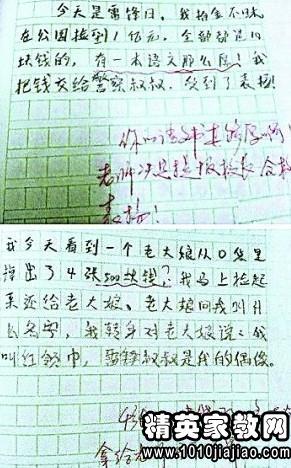 今天是雷锋日,我拾金不昧
在公园捡到1亿元,全部都是10
块钱的,有一本语文那么厚!我
把钱交给警察叔叔,受到了表扬!
你的语文书
老师
表扬!
我今天看到一个老大娘从口袋里
掉出了4张500块钱?我马上捡起
来还给老大娘、老大娘问我叫什
么名字,我转身对老大娘说:我
叫红领巾,雷锋叔叔是我的偶像。
拿给
精英家教网
www.1010jiajiao.com